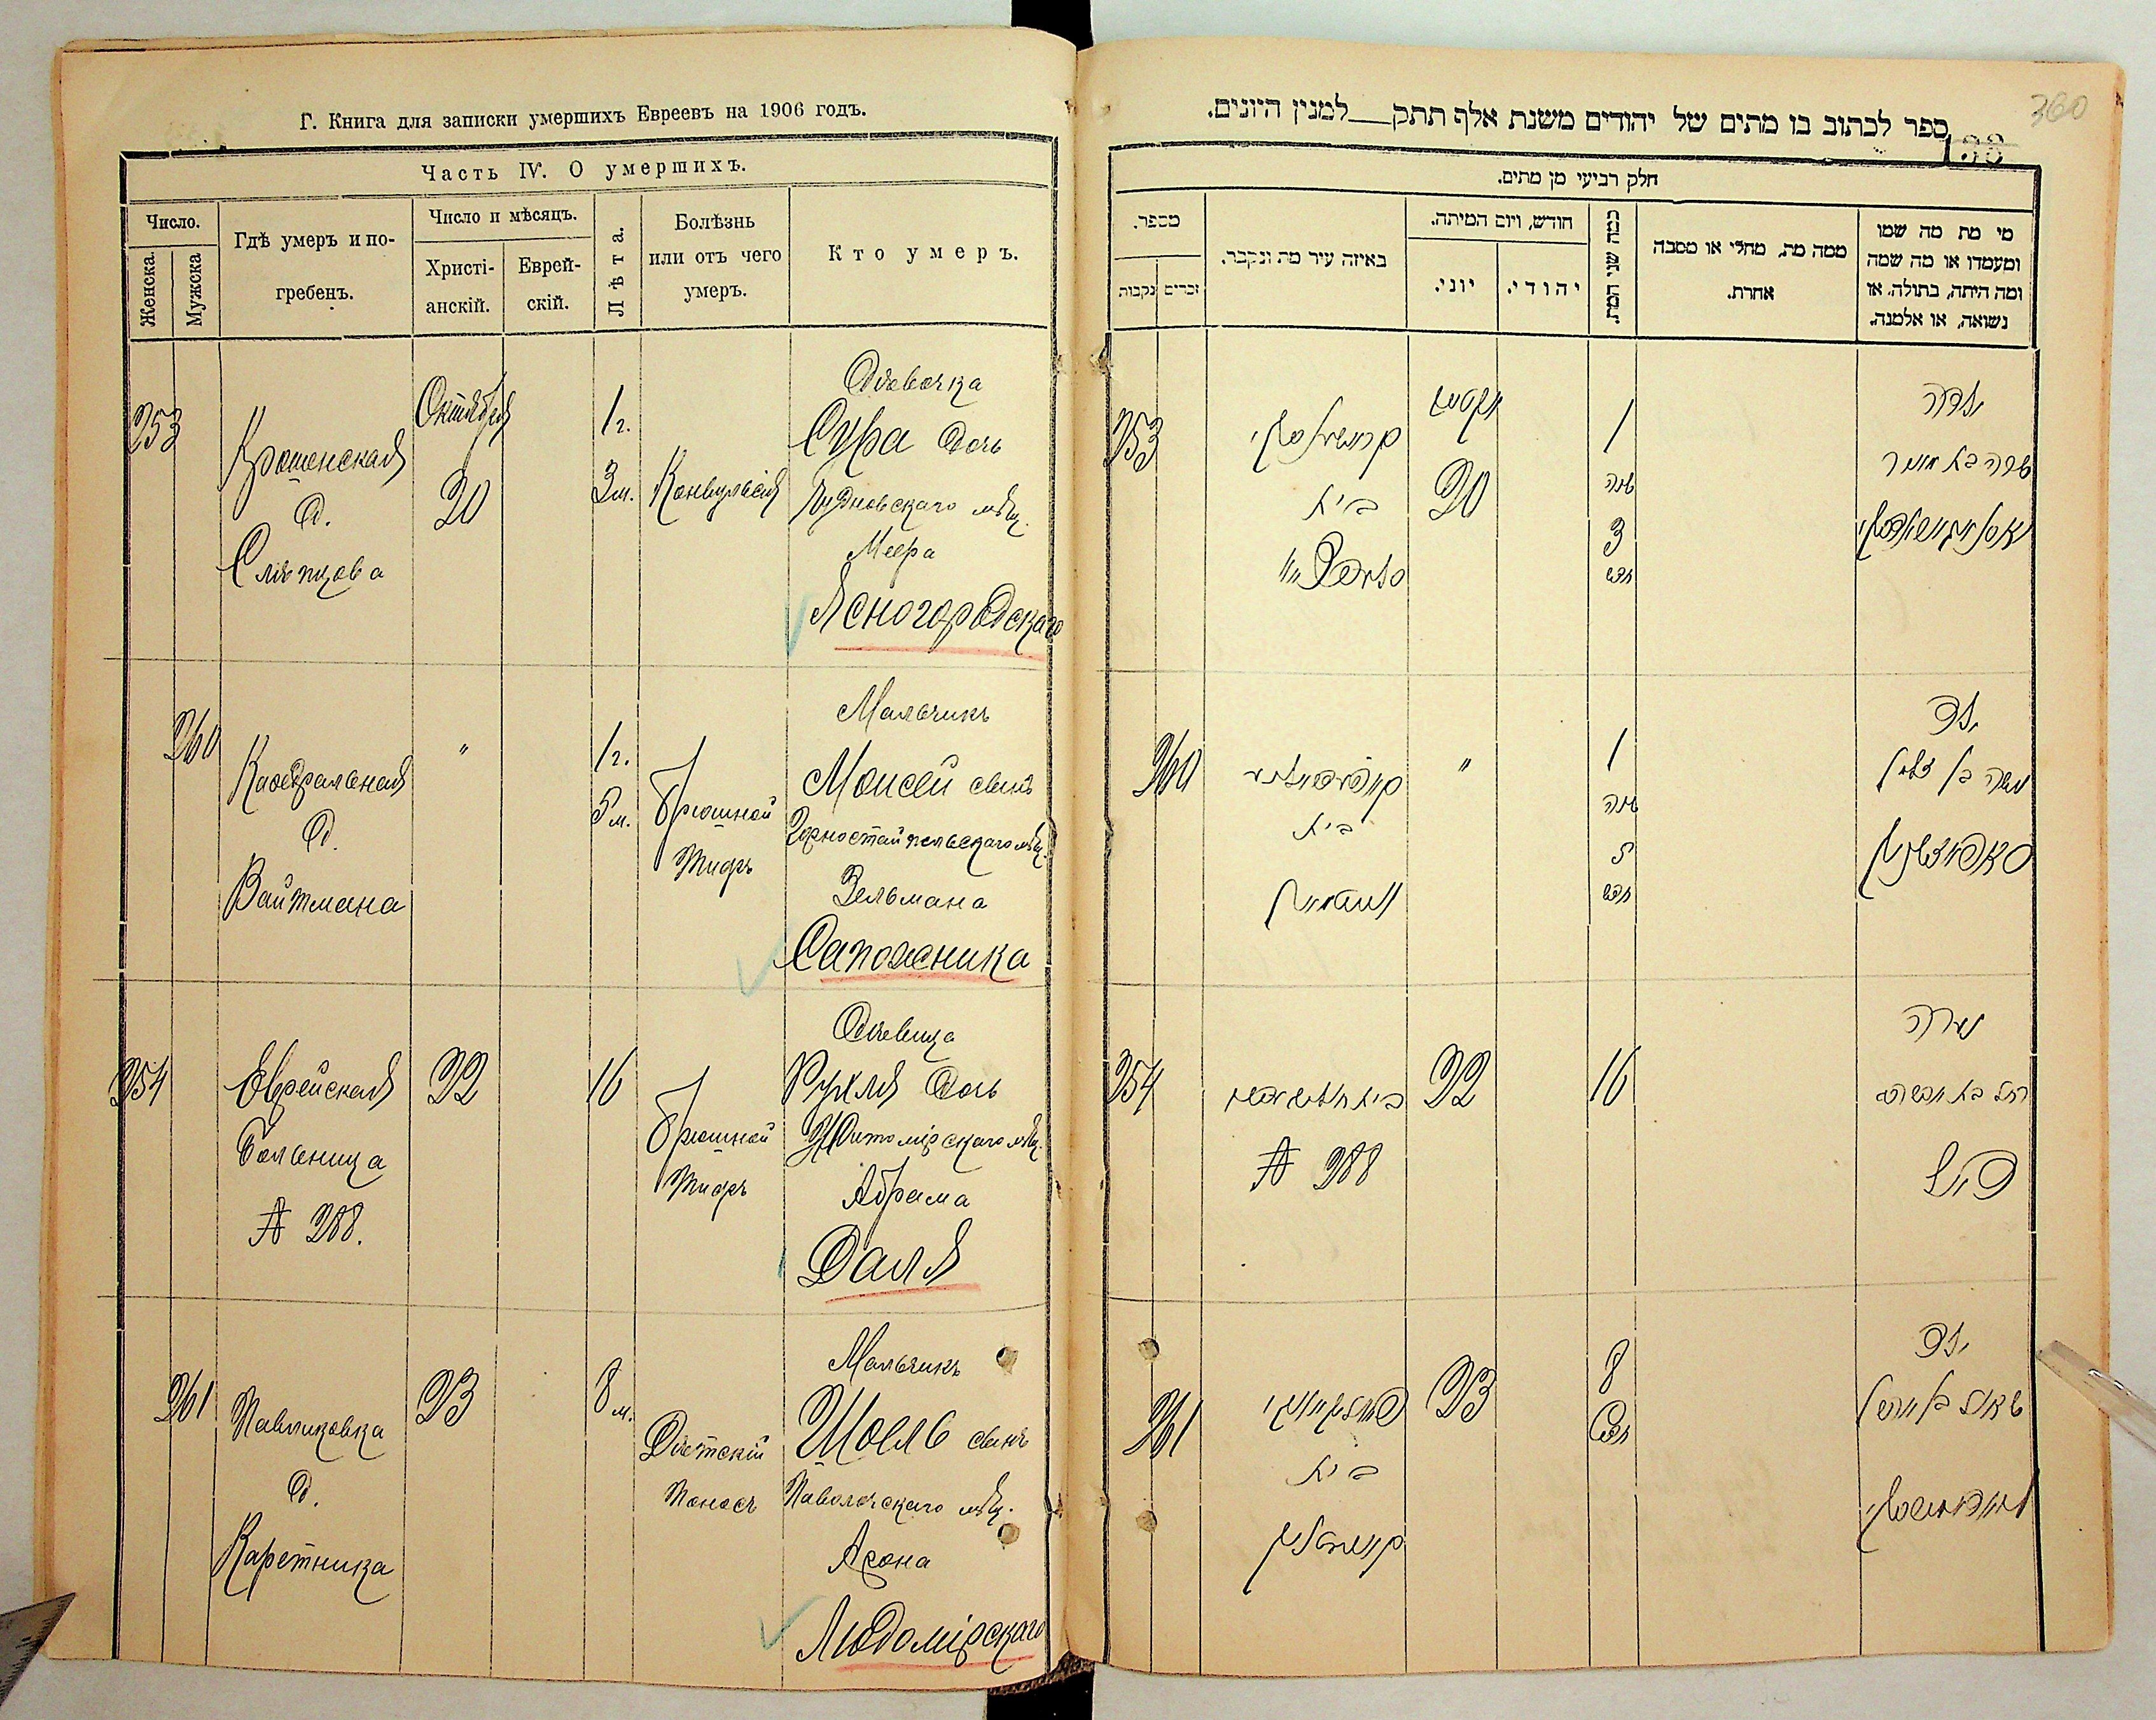 Г. Книга для записки умершихъ Евреевъ на 1906 годъ.
Часть IV. О умершихъ.
Число.
Женска.
Мужска
Гдѣ умеръ и по-
гребенъ.
Число и мѣсяцъ.
Христі-
анскій.
Еврей-
скій.
Лѣта.
Болѣзнь
или отъ чего
умеръ.
Кто умеръ.
253
Крошенская
д.
Слѣпцова
Октября
20
1 г.
3 м.
Конвульсія
Дѣвочка
Сура дочь
Чудновскаго мѣщ.
Меера
Ясногородскаго
260
Каѳедральная
д.
Вайтмана
"
1 г.
5 м.
Брюшной
тифъ
Мальчикъ
Моисей сынъ
Горностайпольскаго мѣщ.
Зельмана
Сапожника
254
Еврейская
больница
№ 288.
22
16
Брюшной
тифъ
Дѣвица
Рухля дочь
Житомірскаго мѣщ.
Абрама
Даля
261
Павликовка
д.
Каретника
23
8 м.
Дѣтскій
поносъ
Мальчикъ
Шоель сынъ
Паволочскаго мѣщ.
Арона
Людомірскаго
360
ספר לכתוב בו מתים של יהודים משנת אלף תתק__למנין היונים.
חלק רביעי מן מתים.
מספר.
נקבות
זכרים
באיזה עיר מת ונקבר.
חודש, ויום המיתה.
יוני.
יהודי.
כמה שני המת.
ממה מת, מחלי או מסבה
אחרת.
מי מת מה שמו
ומעמדו או מה שמה
ומה היתה, בתולה, או
נשואה, או אלמנה.
253
בית
20
1
שנה
3
חדש
ילדה
שרה בת מאיר
260
בית
"
1
שנה
5
חדש
ילד
משה בן זלמן
254
№ 288
22
16
נערה
רחל בת אברהם
דאל
261
בית
23
8
חדש
ילד
שאול בן אהרן